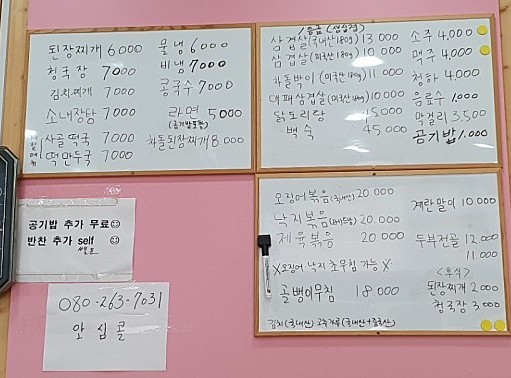 된장찌개 6000
청국장 7000
김치찌개 7000
소내장탕 7000
사골떡국 7000
떡만두국 7000
물냉 6000
비냉 7000
콩국수 7000
라면 5000
(공기밥포함)
차돌된장찌개 8.000
삼겹살(국내산180g) 13,000
삼겹살(미국산180g) 10,000
차돌박이(미국산180g) 11000
대패삼겹살(미국산180g) 10000
닭도리탕 45000
백숙 45,000
소주 4,000
맥주 4,000
청하 4,000
음료수 1,000
막걸리 3,500
공기밥 1.000
오징어볶음(국내산) 20.000
낙지볶음(베트남) 20.000
제육볶음 20000
X오징어·낙지 초무침 가능X
골뱅이무침 18.000
김치(국내산) 고추가루(국내산+중국산)
계란말이 10000
두부전골 12,000
11.000
<후식>
된장찌개 2000
청국장 3,000
공기밥 추가 무료☺
반찬 추가 self☺
080-263-7031
안심콜